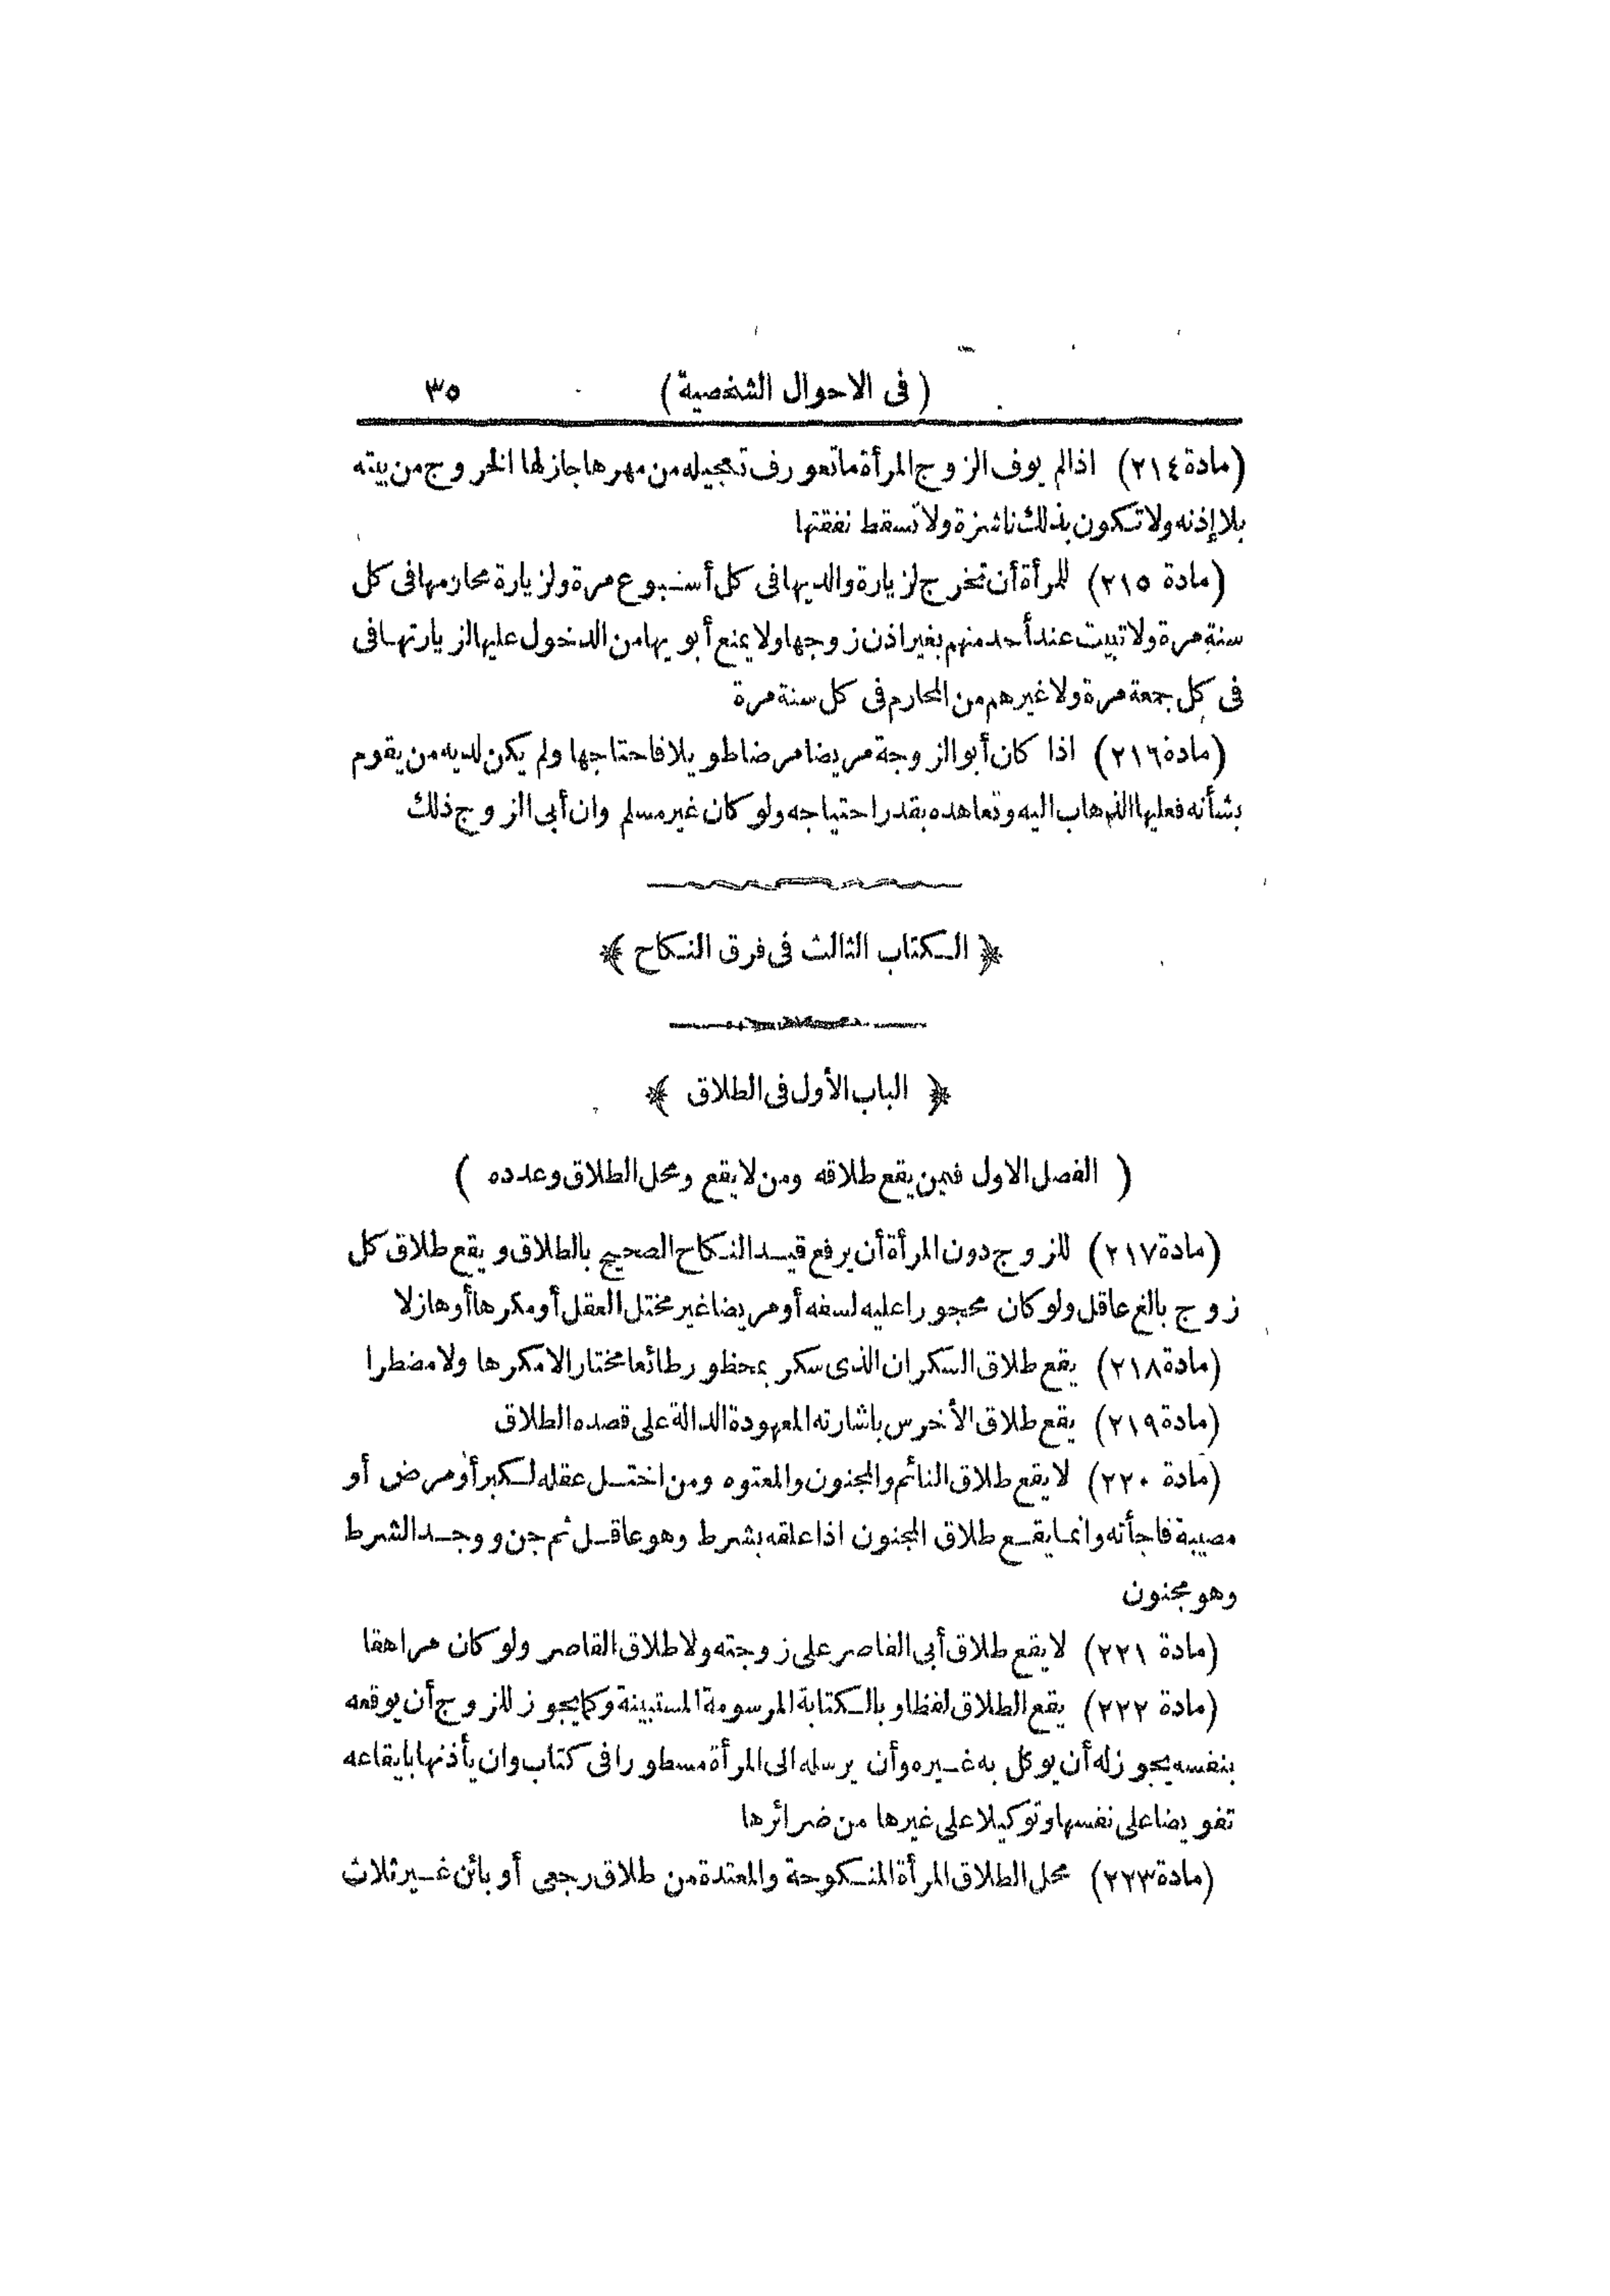 (فى الاحوال الشخصية) ٣٥
(مادة ٢١٤) اذا لم يوف الزوج المرأة ما تعورف تعجيله من مهرها جاز لها الخروج من بيته
بلا إذنه ولا تكون بذلك ناشزة ولا تسقط نفقتها
(مادة ٢١٥) للمرأة أن تخرج لزيارة والديها فى كل أسبوع مرة ولزيارة محارمها فى كل
سنة مرة ولا تبيت عند أحد منهم بغير اذن زوجها ولا يمنع أبويها من الدخول عليها لزيارتها فى
فى كل جمعة مرة ولا غيرهم من المحارم فى كل سنة مرة
(مادة ٢١٦) اذا كان أبو الزوجة مريضا مرضا طويلا فاحتاجها ولم يكن لديه من يقوم
بشأنه فعليها الذهاب اليه وتعاهده بقدر احتياجه ولو كان غير مسلم وان أبى الزوج ذلك
﴿ الكتاب الثالث فى فرق النكاح ﴾
﴿ الباب الأول فى الطلاق ﴾
( الفصل الاول فيمن يقع طلاقه ومن لا يقع ومحل الطلاق وعدده )
(مادة ٢١٧) للزوج دون المرأة أن يرفع قيد النكاح الصحيح بالطلاق ويقع طلاق كل
زوج بالغ عاقل ولو كان محجورا عليه لسفه أو مريضا غير مختل العقل أو مكرها أو هازلا
(مادة ٢١٨) يقع طلاق السكران الذى سكر بمحظور طائعا مختارا لا مكرها ولا مضطرا
(مادة ٢١٩) يقع طلاق الأخرس باشارته المعهودة الدالة على قصده الطلاق
(مادة ٢٢٠) لا يقع طلاق النائم والمجنون والمعتوه ومن اختل عقله لكبر أو مرض أو
مصيبة فاجأته وانما يقع طلاق المجنون اذا علقه بشرط وهو عاقل ثم جن ووجد الشرط
وهو مجنون
(مادة ٢٢١) لا يقع طلاق أبى القاصر على زوجته ولا طلاق القاصر ولو كان مراهقا
(مادة ٢٢٢) يقع الطلاق لفظا وبالكتابة المرسومة المستبينة وكما يجوز للزوج أن يوقعه
بنفسه يجوز له أن يوكل به غيره وأن يرسله الى المرأة مسطورا فى كتاب وان يأذنها بايقاعه
تفويضا على نفسها وتوكيلا على غيرها من ضرائرها
(مادة ٢٢٣) محل الطلاق المرأة المنكوحة والمعتدة من طلاق رجعى أو بائن غير ثلاث